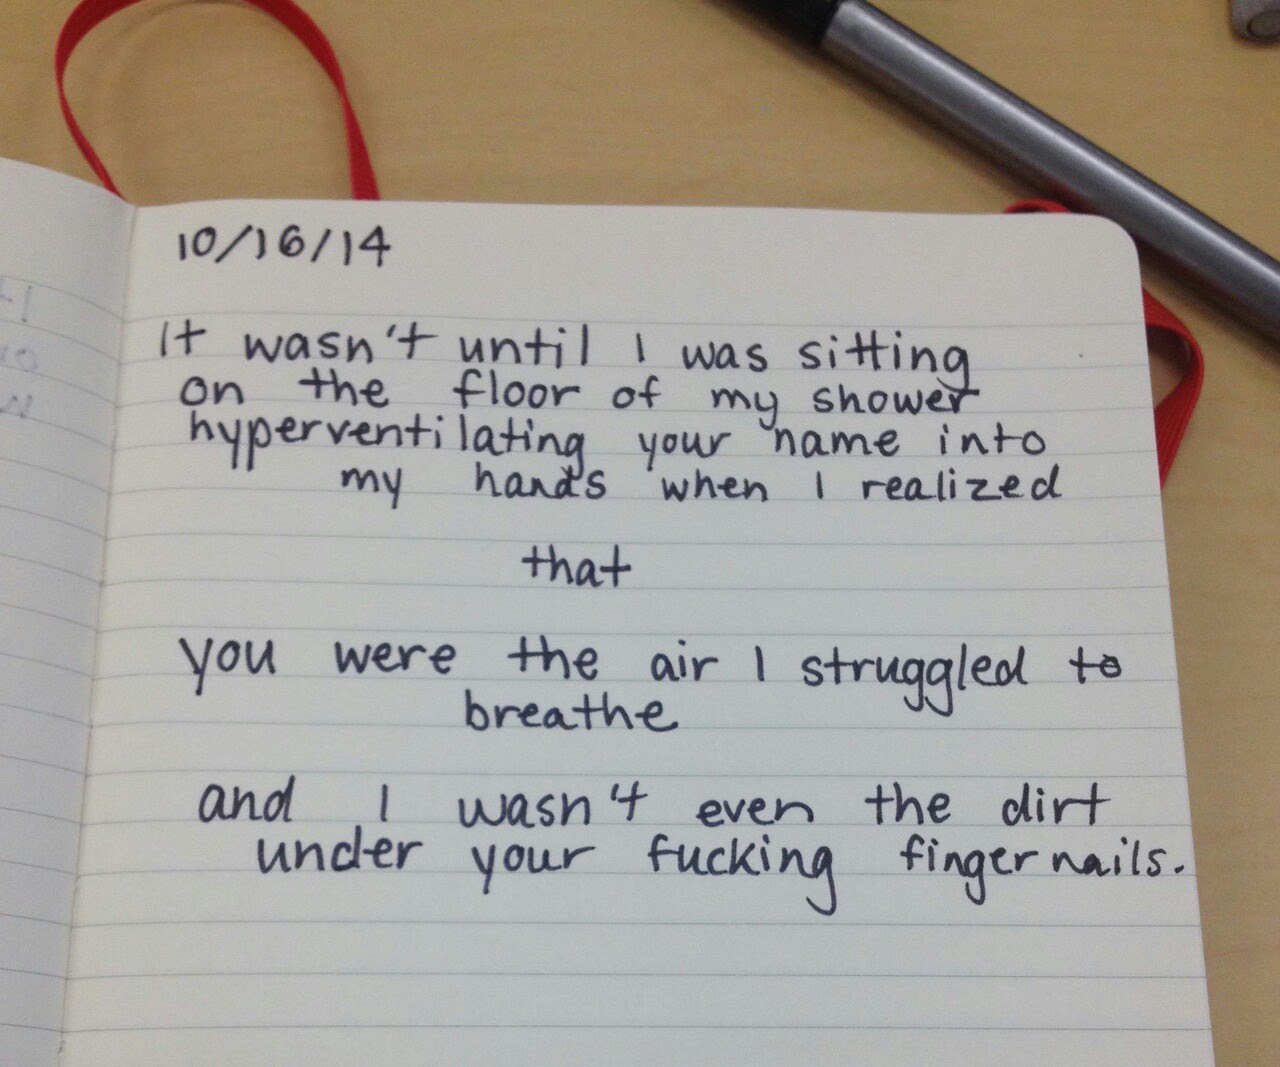 10/16/14
It wasn't until I was sitting
on the floor of my shower
hyperventilating your name into
my hands when I realized
that
you were the air I struggled to
breathe
and I wasn't even the dirt
under your fucking fingernails.